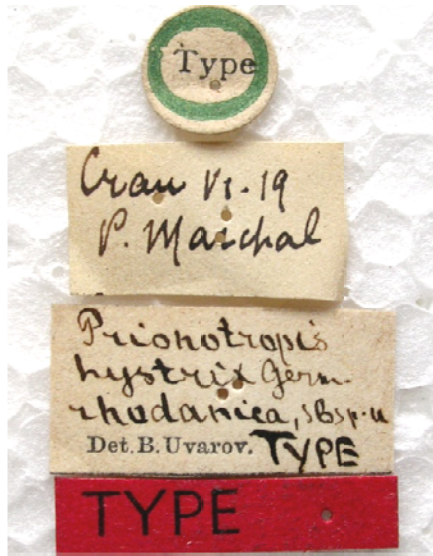 Type
Crau VI-19
P. Marchal
Prionotropis
hystrix Germ.
rhodanica, sbsp. n
Det. B. Uvarov. TYPE
TYPE